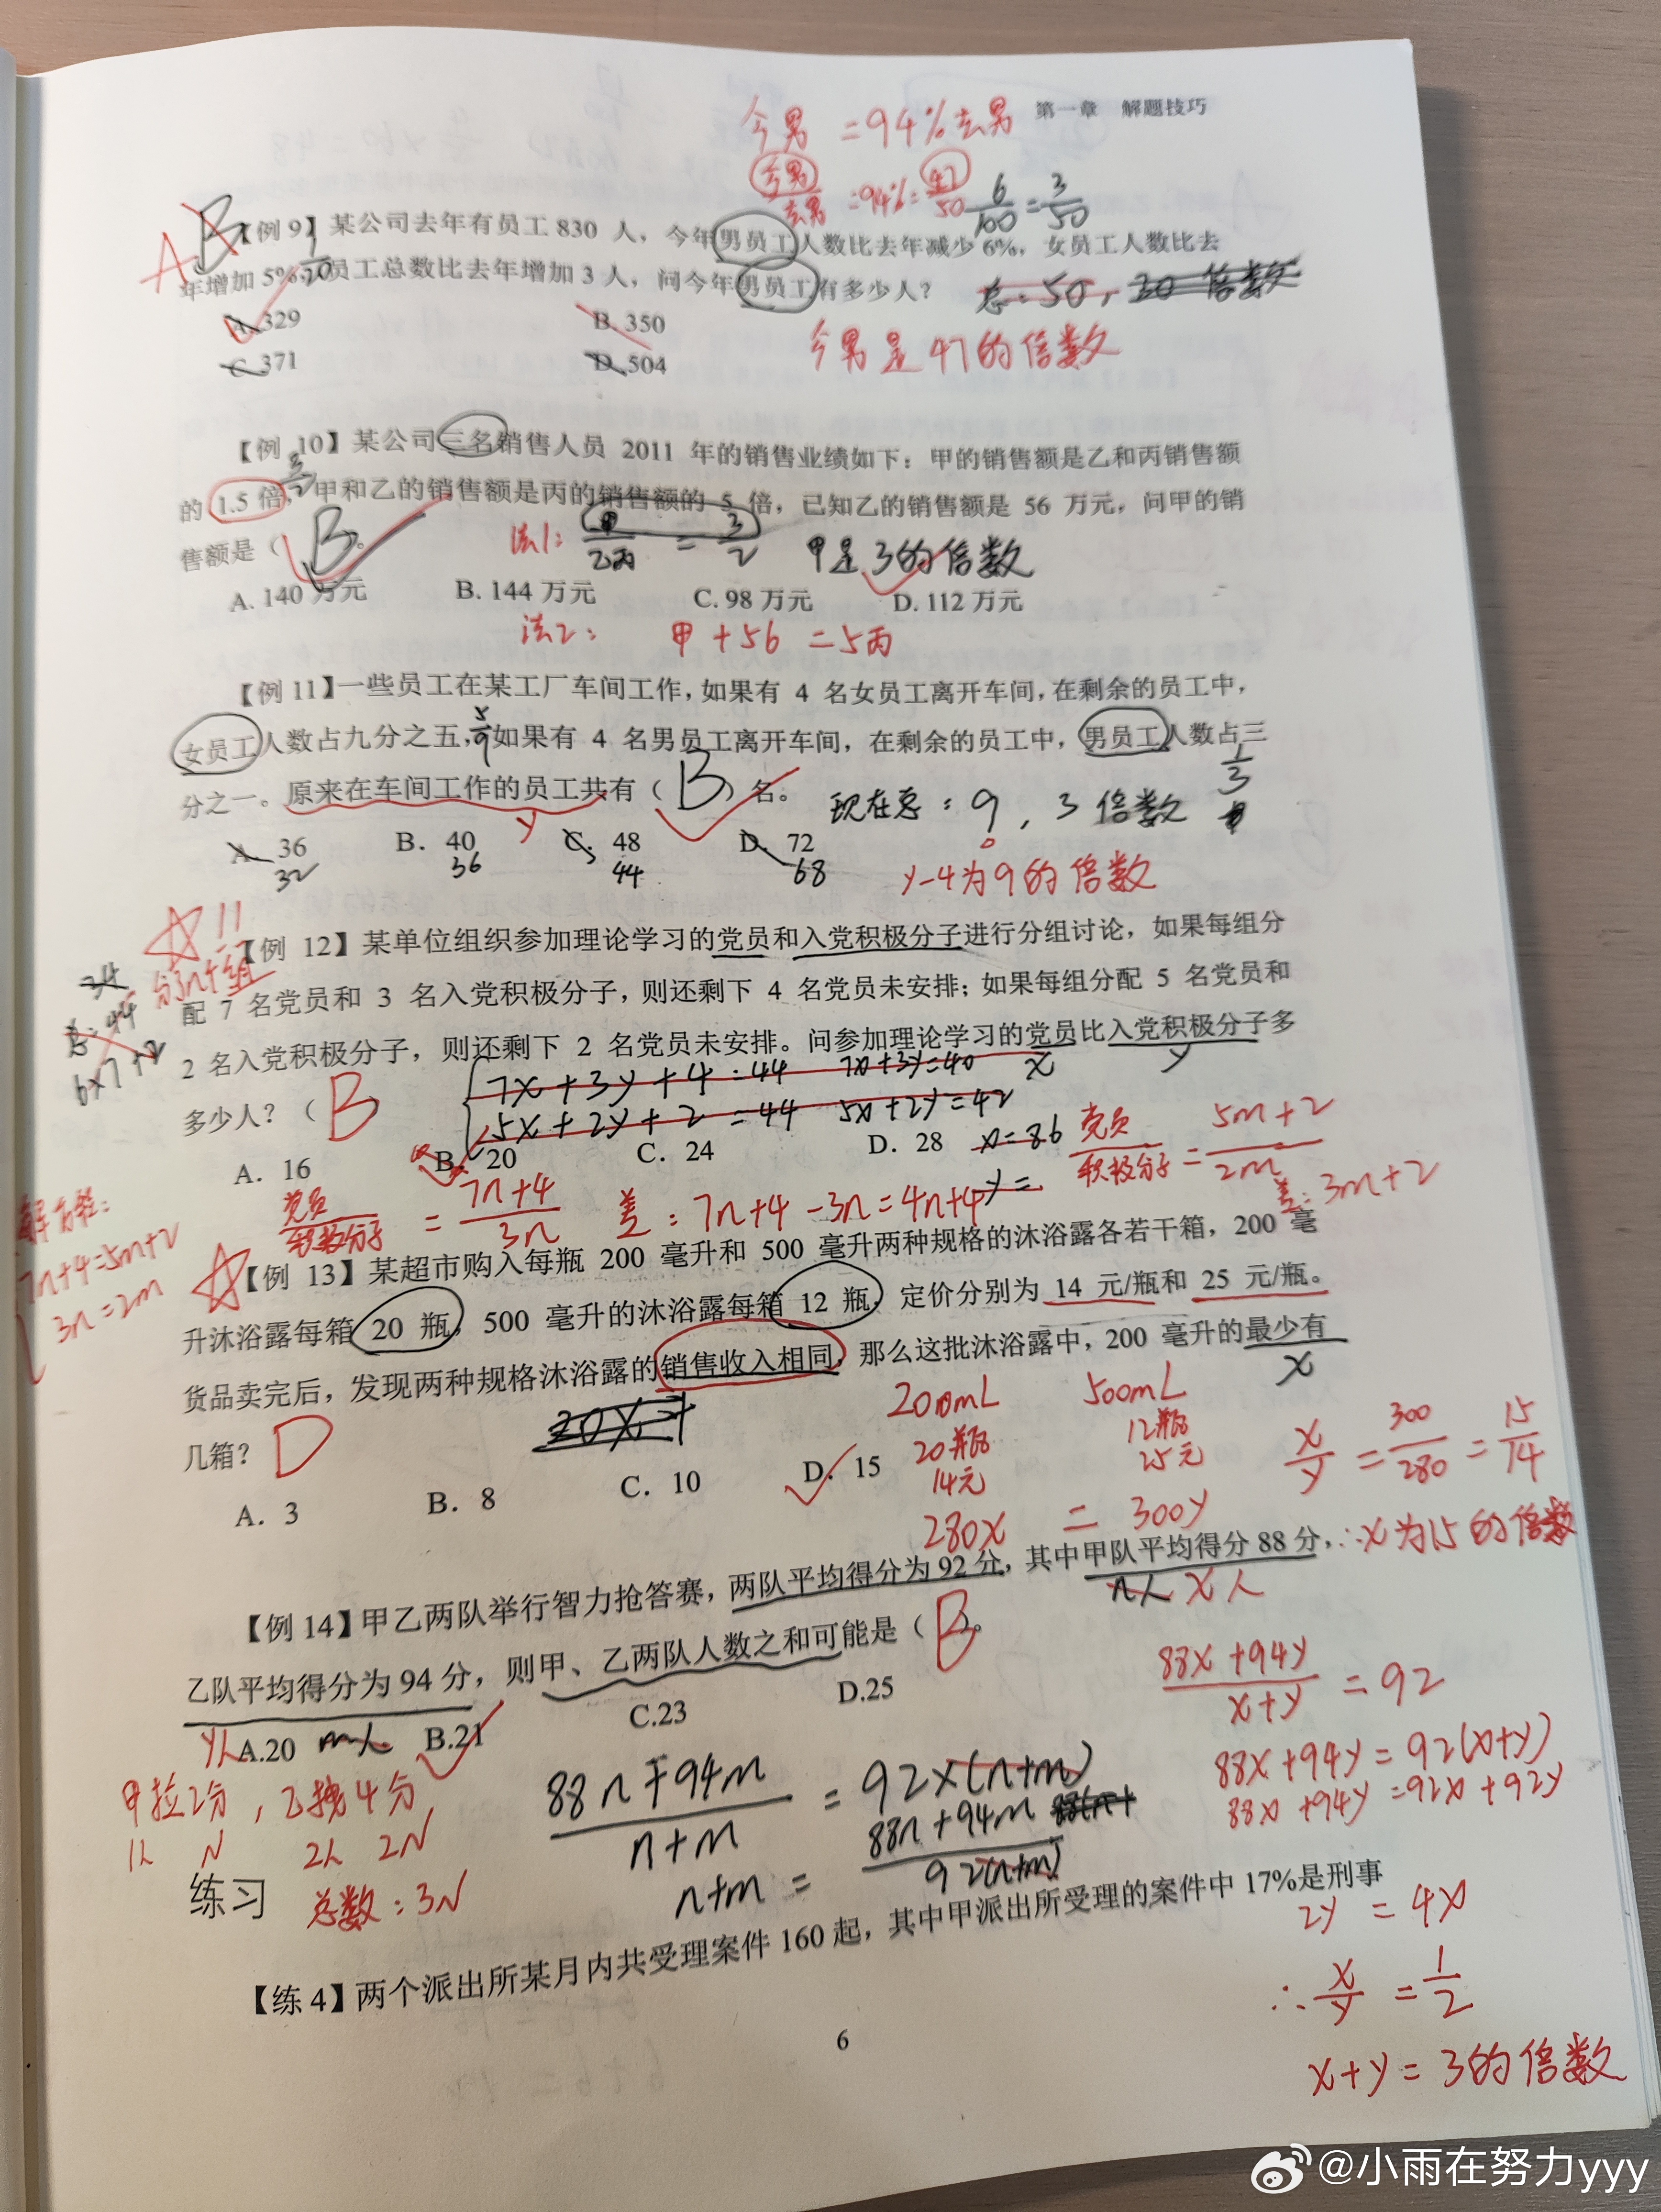 第一章 解题技巧
今男 =94%去男
今男/去男 =94%=47/50 6/100=3/50
A B
【例 9】某公司去年有员工 830 人，今年男员工人数比去年减少 6%，女员工人数比去
年增加 5%，员工总数比去年增加 3 人，问今年男员工有多少人？
1/20
总:50，30 倍数
A. 329 B. 350
今男是47的倍数
C. 371 D. 504
【例 10】某公司三名销售人员 2011 年的销售业绩如下：甲的销售额是乙和丙销售额
的 1.5 倍，甲和乙的销售额是丙的销售额的 5 倍，已知乙的销售额是 56 万元，问甲的销
售额是（ B 。
法1: 甲/乙丙 = 3/2 甲是3的倍数
A. 140 万元 B. 144 万元 C. 98 万元 D. 112 万元
法2: 甲+56 =5丙
【例 11】一些员工在某工厂车间工作，如果有 4 名女员工离开车间，在剩余的员工中，
女员工人数占九分之五，如果有 4 名男员工离开车间，在剩余的员工中，男员工人数占三
5/9
1/3
分之一。原来在车间工作的员工共有（ B ）名。
现在总: 9, 3倍数
y
A. 36 B. 40 C. 48 D. 72
32 36 44 68
y-4为9的倍数
11
【例 12】某单位组织参加理论学习的党员和入党积极分子进行分组讨论，如果每组分
分n个组
34
总:44
6×7+2
配 7 名党员和 3 名入党积极分子，则还剩下 4 名党员未安排；如果每组分配 5 名党员和
2 名入党积极分子，则还剩下 2 名党员未安排。问参加理论学习的党员比入党积极分子多
x y
多少人？（ B
7x+3y+4=44 7x+3y=40
5x+2y+2=44 5x+2y=42
A. 16 B. 20 C. 24 D. 28 x=86
y=
党员/积极分子 = 5m+2/2m
差: 3m+2
党员/积极分子 = 7n+4/3n 差: 7n+4-3n=4n+4
7n+4=5m+2
3n=2m
【例 13】某超市购入每瓶 200 毫升和 500 毫升两种规格的沐浴露各若干箱，200 毫
升沐浴露每箱 20 瓶，500 毫升的沐浴露每箱 12 瓶，定价分别为 14 元/瓶和 25 元/瓶。
货品卖完后，发现两种规格沐浴露的销售收入相同，那么这批沐浴露中，200 毫升的最少有
x
几箱？ D
A. 3 B. 8 C. 10 D. 15
200mL 500mL
20瓶 12瓶
14元 25元
280x = 300y
x/y = 300/280 = 15/14
∴x为15的倍数
【例 14】甲乙两队举行智力抢答赛，两队平均得分为 92 分，其中甲队平均得分 88 分，
n人 x人
乙队平均得分为 94 分，则甲、乙两队人数之和可能是（ B 。
y人 m人
A.20 B.21 C.23 D.25
甲拉2分，乙拽4分
1人 N 2人 2N
总数: 3N
88n+94m/n+m = 92×(n+m)
n+m = 88n+94m/92(n+m)
88x+94y/x+y =92
88x+94y=92(x+y)
88x+94y=92x+92y
2y =4x
∴x/y =1/2
x+y=3的倍数
练习
【练 4】两个派出所某月内共受理案件 160 起，其中甲派出所受理的案件中 17%是刑事
6
@小雨在努力yyy